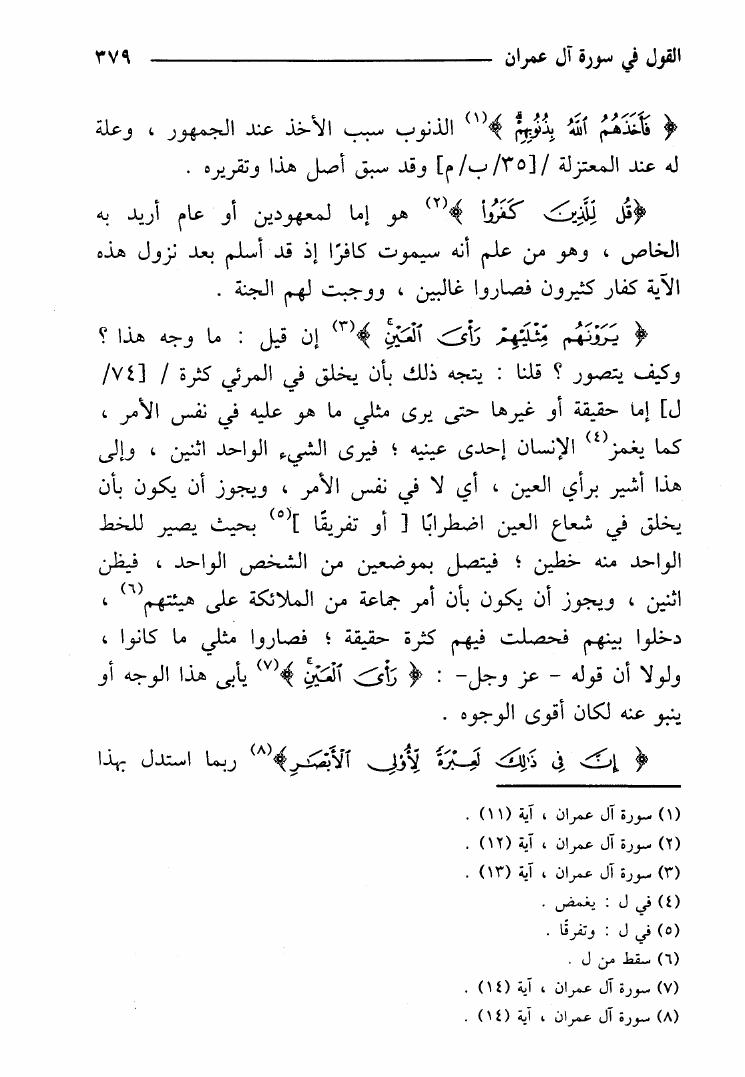 القول في سورة آل عمران ٣٧٩
﴿ فَأَخَذَهُمُ ٱللَّهُ بِذُنُوبِهِمْ ﴾(١) الذنوب سبب الأخذ عند الجمهور ، وعلة
له عند المعتزلة /[٣٥/ب/م] وقد سبق أصل هذا وتقريره .
﴿قُل لِّلَّذِينَ كَفَرُوا۟ ﴾(٢) هو إما لمعهودين أو عام أريد به
الخاص ، وهو من علم أنه سيموت كافرًا إذ قد أسلم بعد نزول هذه
الآية كفار كثيرون فصاروا غالبين ، ووجبت لهم الجنة .
﴿ يَرَوْنَهُم مِّثْلَيْهِمْ رَأْىَ ٱلْعَيْنِ ﴾(٣) إن قيل : ما وجه هذا ؟
وكيف يتصور ؟ قلنا : يتجه ذلك بأن يخلق في المرئي كثرة / [٧٤/
ل] إما حقيقة أو غيرها حتى يرى مثلي ما هو عليه في نفس الأمر ،
كما يغمز(٤) الإنسان إحدى عينيه ؛ فيرى الشيء الواحد اثنين ، وإلى
هذا أشير برأي العين ، أي لا في نفس الأمر ، ويجوز أن يكون بأن
يخلق في شعاع العين اضطرابًا [ أو تفريقًا ](٥) بحيث يصير للخط
الواحد منه خطين ؛ فيتصل بموضعين من الشخص الواحد ، فيظن
اثنين ، ويجوز أن يكون بأن أمر جماعة من الملائكة على هيئتهم(٦) ،
دخلوا بينهم فحصلت فيهم كثرة حقيقة ؛ فصاروا مثلي ما كانوا ،
ولولا أن قوله - عز وجل- : ﴿ رَأْىَ ٱلْعَيْنِ ﴾(٧) يأبى هذا الوجه أو
ينبو عنه لكان أقوى الوجوه .
﴿ إِنَّ فِى ذَٰلِكَ لَعِبْرَةً لِّأُو۟لِى ٱلْأَبْصَـٰرِ﴾(٨) ربما استدل بهذا
(١) سورة آل عمران ، آية (١١) .
(٢) سورة آل عمران ، آية (١٢) .
(٣) سورة آل عمران ، آية (١٣) .
(٤) في ل : يغمض .
(٥) في ل : وتفرقًا .
(٦) سقط من ل .
(٧) سورة آل عمران ، آية (١٤) .
(٨) سورة آل عمران ، آية (١٤) .